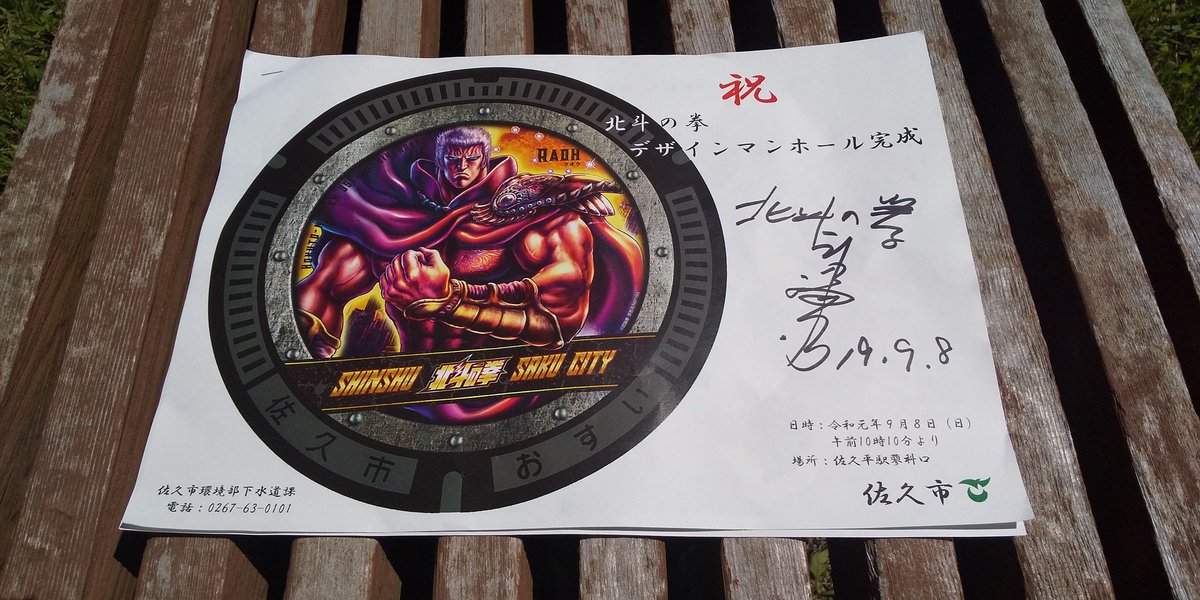 祝
北斗の拳
デザインマンホール完成
RAOH
ラオウ
SHINSHU 北斗の拳 SAKU CITY
佐久市
おすい
北斗の拳
'19.9.8
日時：令和元年9月8日（日）
午前10時10分より
場所：佐久平駅蓼科口
佐久市環境部下水道課
電話：0267-63-0101
佐久市